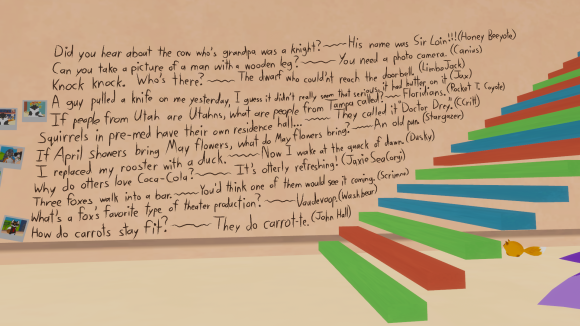 Did you hear about the cow who's grandpa was a knight? ~~ His name was Sir Loin!!! (Honey Beeyole)
Can you take a picture of a man with a wooden leg? ~~ You need a photo camera. (Canius)
Knock knock. Who's there? ~~ The dwarf who couldn't reach the doorbell. (LimboJack)
A guy pulled a knife on me yesterday, I guess it didn't really seem that serious, it had butter on it (Jax)
If people from Utah are Utahns, what are people from Tampa called? ~~ Floridians. (Pocket T. Coyote)
Squirrels in pre-med have their own residence hall... ~~ They called it "Doctor Drey. (Grill)
If April showers bring May flowers, what do May flowers bring? ~~ An old pun. (Stargazer)
I replaced my rooster with a duck. ~~ Now I wake at the quack of dawn. (Dusky)
Why do otters love Coca-Cola? ~~ It's otterly refreshing! (JaxieSeaCorgi)
Three foxes walk into a bar. ~~ You'd think one of them would see it coming. (Scrimm)
What's a fox's favorite type of theater production? ~~ Vaudevoop. (Washbear)
How do carrots stay fit? ~~ They do carrot-te. (John Hall)